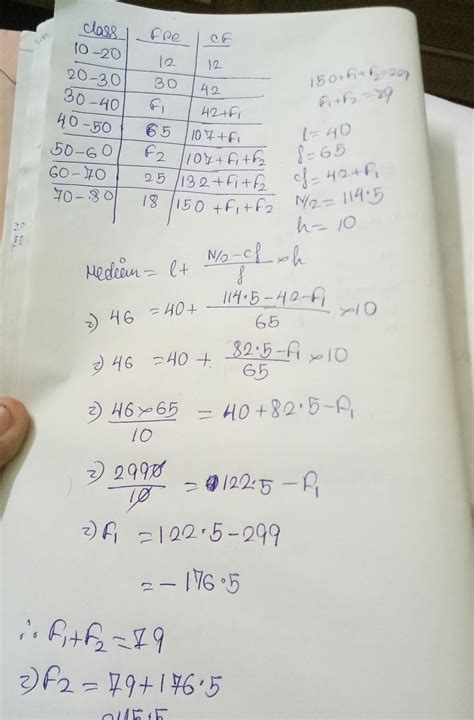 class Fre CF
10-20 12 12
20-30 30 42
30-40 f₁ 42+f₁
40-50 65 107+f₁
50-60 f₂ 107+f₁+f₂
60-70 25 132+f₁+f₂
70-80 18 150+f₁+f₂
150+f₁+f₂=229
f₁+f₂=79
l=40
f=65
cf=42+f₁
N/2=114.5
h=10
Median = l+ (N/2-cf)/f ×h
⇒) 46 =40+ (114.5-42-f₁)/65 ×10
⇒) 46 =40+ (82.5-f₁)/65 ×10
⇒) (46×65)/10 = 40+82.5-f₁
⇒) 2990/10 = 122.5-f₁
⇒) f₁ =122.5-299
=-176.5
∴ f₁+f₂=79
⇒) f₂ = 79+176.5